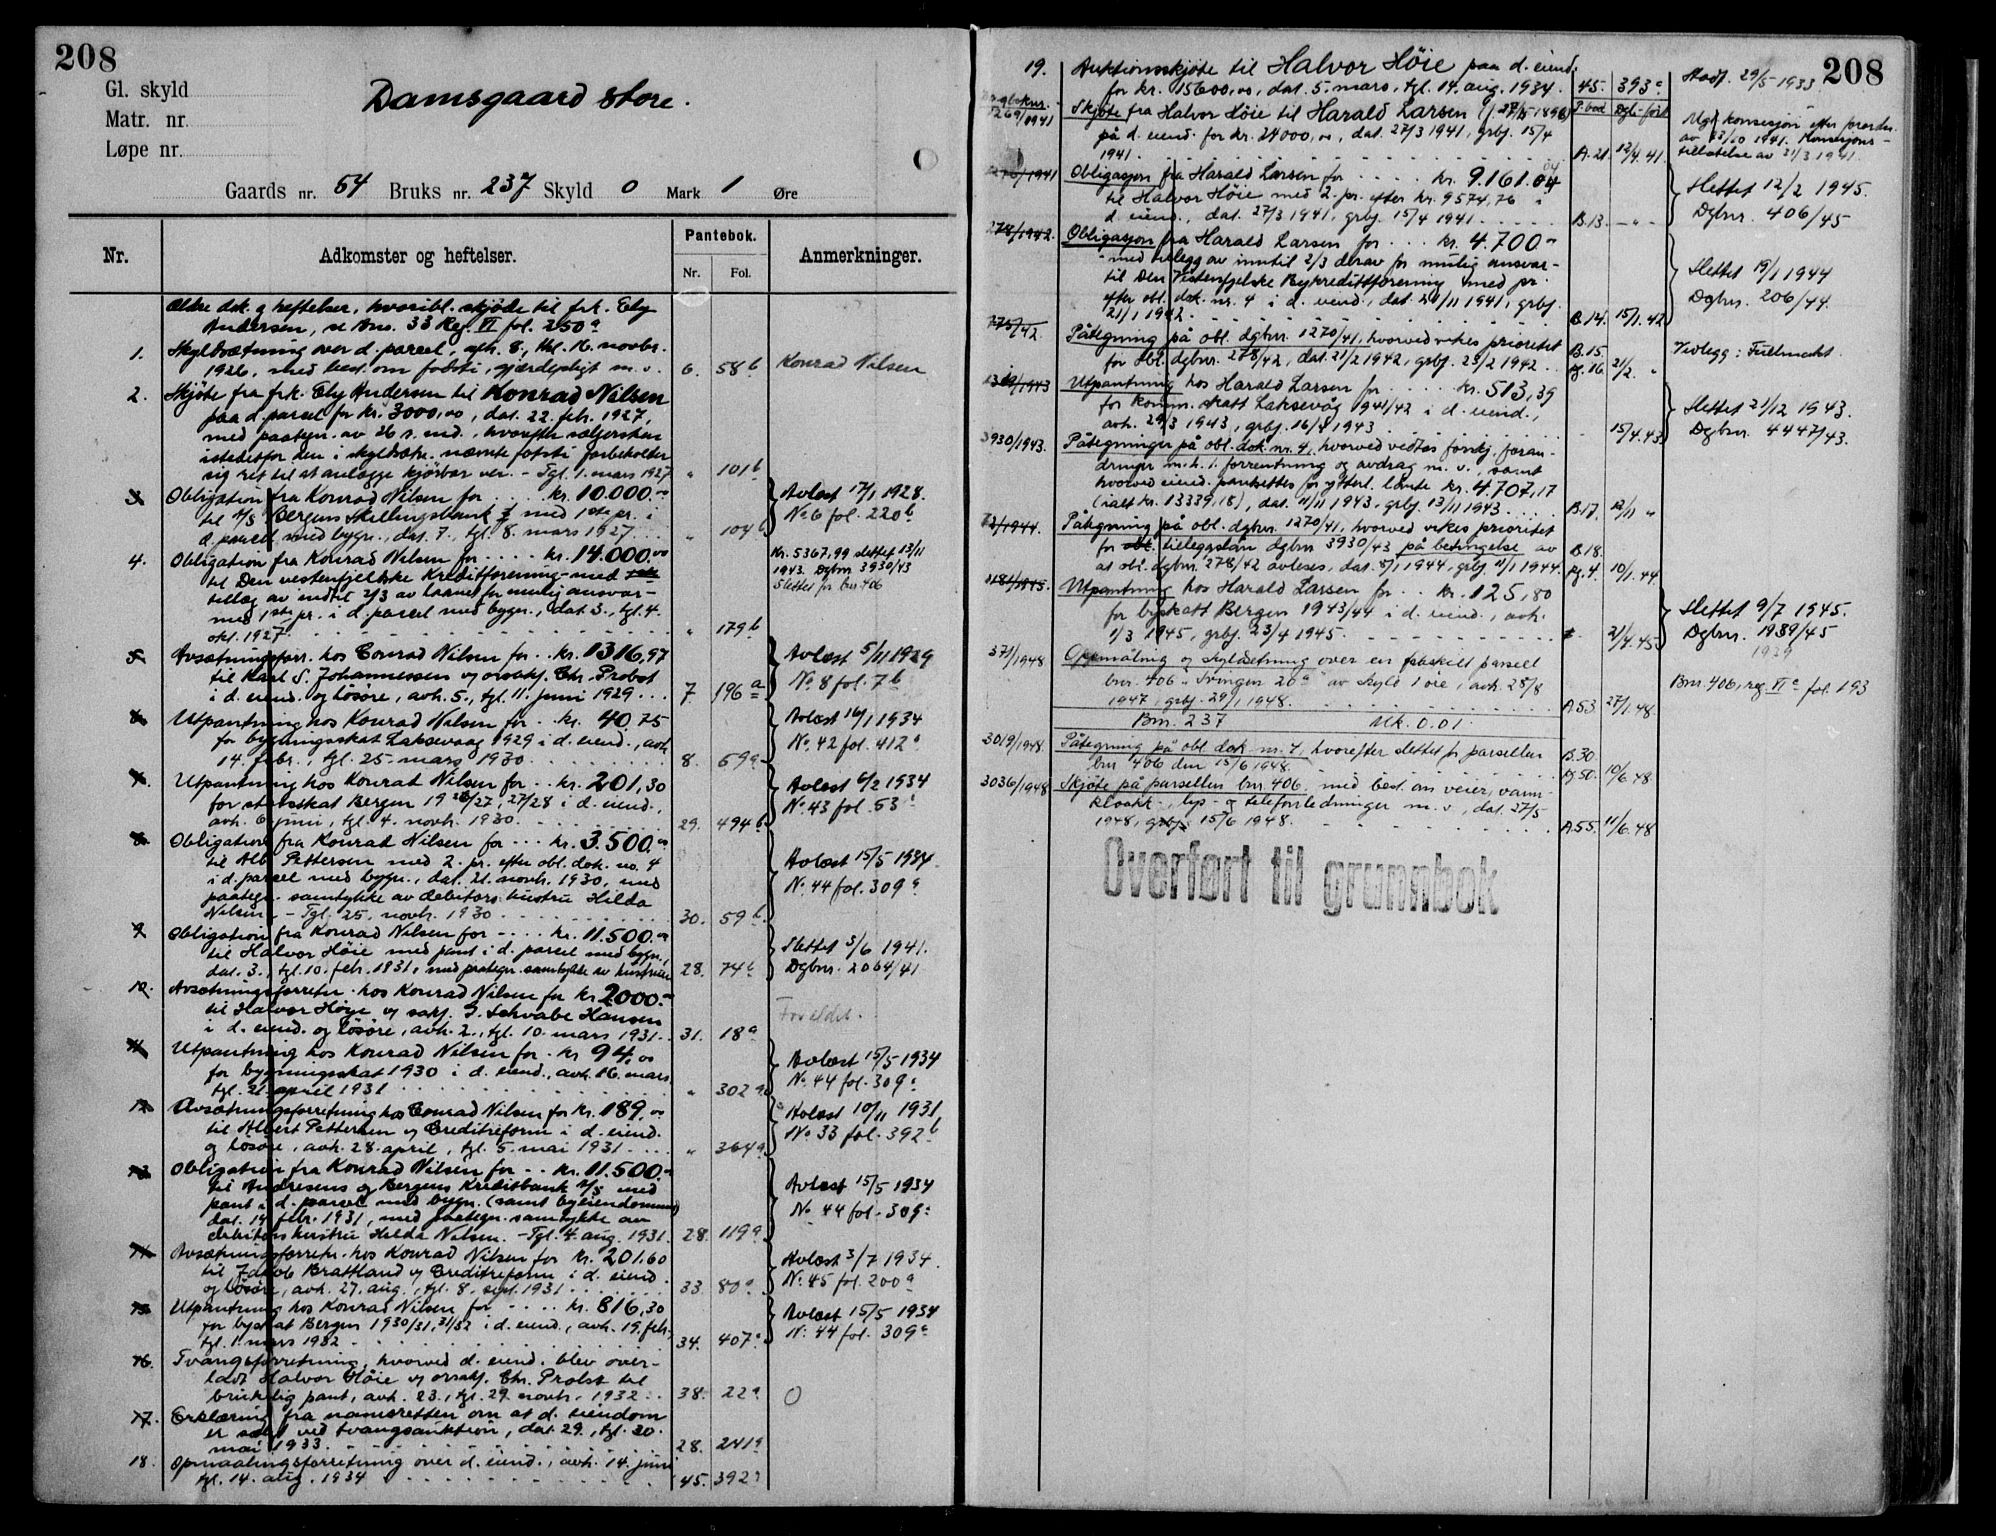 208
Gl. skyld
Matr. nr.
Løpe nr.
Damsgaard store.
Gaards nr. 54 Bruks nr. 237 Skyld 0 Mark 1 Øre
Nr.
Adkomster og heftelser.
Pantebok.
Nr. Fol.
Anmerkninger.
Ældre dok. og heftelser, hvoribl. skjøde til frk. Ely
Andersen, se Bno. 33 Reg. VI fol. 250a
1. Skyldsætning over d. parcel, avh. 8., tgl. 16. novbr.
1926, med best. om fotsti, gjærdepligt m.v. 6. 58b Konrad Nilsen
2. Skjøte fra frk. Ely Andersen til Konrad Nilsen
paa d. parcel for kr. 3000,00, dat. 22. febr. 1927,
med paategn. av 26 s. md., hvorefter sælgersken
istedetfor den i skyldsætn. nævnte fotsti forbeholder
sig ret til at anlægge kjørbar vei. - Tgl. 1. mars 1927 " 101b
3. Obligation fra Konrad Nilsen for .... kr. 10.000.-
til A/S Bergens Skillingsbank med 1ste pr. i
d. parcel med bygn., dat. 7., tgl. 8. mars 1927 ... " 104b
Avlæst 17/1 1928.
No 6 fol. 220b
4. Obligation fra Konrad Nilsen for .... kr. 14.000.00
til Den vestenfjelske Kreditforening - med
tillæg av indtil 2/3 av laanet for mulig ansvar -
med 1ste pr. i d. parcel med bygn., dat. 3., tgl. 4.
okt. 1927. " 179b
Kr. 5367,99 slettet 13/11
1943. Dgbnr 3930/43
Slettet for bnr 406
5. Avsætningsforr. hos Conrad Nilsen for .. kr. 1316,97
til Karl S. Johannessen og orsakf. Chr. Probst
i d. eiend. og løsøre, avh. 5., tgl. 11. juni 1929 ... 7. 196a
Avlæst 5/11 1929
No 8 fol. 7b
6. Utpantning hos Konrad Nilsen for .. kr. 40,75
for bygningsskat Laksevaag 1929 i d. eiend., avh.
14. febr., tgl. 25. mars 1930 8. 69a
Avlæst 16/1 1934
No. 42 fol. 412a
7. Utpantning hos Konrad Nilsen for .. kr. 201,30
for statsskat Bergen 1926/27, 27/28 i d. eiend.,
avh. 6. juni, tgl. 4. novbr. 1930. 29. 494b
Avlæst 6/2 1934
No. 43 fol. 53a
8. Obligation fra Konrad Nilsen for ... kr. 3.500.00
til Alb. Pettersen med 2. pr. efter obl. dok. no. 4
i d. parcel med bygn., dat. 21. novbr. 1930, med
paategn. samtykke av debitors hustru Hilda
Nilsen. - Tgl. 25. novbr. 1930 30. 59b
Avlæst 15/5 1934
No. 44 fol. 309a
9. Obligation fra Konrad Nilsen for .... kr. 11.500.00
til Halvor Höie med pant i d. parcel med bygn.,
dat. 3., tgl. 10. febr. 1931, med paategn. samtykke av hustruen 28. 74b
Slettet 3/6 1941.
Dgbnr. 2064/41
10. Avsætningsforretn. hos Konrad Nilsen for kr. 2000.-
til Halvor Höye og sakf. G. Schvabe Hansen
i d. eiend. og løsøre, avh. 2., tgl. 10. mars 1931. 31. 18a
Foreldet.
11. Utpantning hos Konrad Nilsen for . kr. 94,00
for bygningsskat 1930 i d. eiend., avh. 16. mars,
tgl. 21. april 1931 " 302a
Avlæst 15/5 1934
No. 44 fol. 309a
12. Avsætningsforretning hos Conrad Nilsen for kr. 189,00
til Albert Pettersen og Creditreform i d. eiend.
og løsøre, avh. 28. april, tgl. 5. mai 1931 " 364a
Avlæst 10/11 1931,
No 33 fol. 392b
13. Obligation fra Konrad Nilsen for .. kr. 11.500.-
til Andresens og Bergens Kreditbank A/S med
pant i d. parcel med bygn. (samt byeiendommer)
dat. 14. febr. 1931, med paategn. samtykke av
debitors hustru Hilda Nilsen. - Tgl. 4. aug. 1931. 28. 119a
Avlæst 15/5 1934
No. 44 fol. 309a
14. Avsætningsforretn. hos Konrad Nilsen for kr. 201.60
til Jakob Brattland og Creditreform i d. eiend.
og løsøre, avh. 27. aug., tgl. 8. sept. 1931 33. 80a
Avlæst 3/7 1934.
No. 45 fol. 200a
15. Utpantning hos Konrad Nilsen for .... kr. 816,30
for byskat Bergen 1930/31, 31/32 i d. eiend., avh. 19. febr.,
tgl. 1. mars 1932 34. 407a
Avlæst 15/5 1934
No. 44 fol. 309a
16. Tvangsforretning, hvorved d. eiend. blev over-
ladt Halvor Höie og orsakf. Chr. Probst til
brukelig pant, avh. 23., tgl. 29. novbr. 1932 .. 38. 22a
17. Erklæring fra namsretten om at d. eiendom
er solgt ved tvangsauktion, dat. 29., tgl. 30.
mai 1933. 28. 241a
18. Opmaalingsforretning over d. eiend., avh. 14. juni
tgl. 14. aug. 1934 45. 392a
208
19. Auktionsskjøte til Halvor Höie paa d. eiend.
for kr. 15600,00, dat. 5. mars, tgl. 14. aug. 1934. 45. 393a Stadf. 29/5 1933
P.bod Dgb-ført
1269/1941 Skjøte fra Halvor Höie til Harald Larsen (f. 27/5 1898)
på d. eiend. for kr. 24000,00, dat. 27/3 1941, grbj. 15/4
1941. A. 21. 12/4. 41.
Mgl. konsesjon efter forordn.
av 23/10 1941. Konsesjons-
tillatelse av 31/3 1941.
1270/1941 Obligasjon fra Harald Larsen for .... kr. 9.161.04
til Halvor Höie med 2. pr. efter kr. 9574,76 i
d. eiend., dat. 27/3 1941, grbj. 15/4 1941. B. 13. - " -
Slettet 12/2 1945.
Dgbnr. 406/45
278/1942. Obligasjon fra Harald Larsen for ... kr. 4.700.-
- med tillegg av inntil 2/3 derav for mulig ansvar -
til Den Vestenfjelske Bykredittforening med pr.
efter obl. dok. nr. 4 i d. eiend., dat. 21/11 1941, grbj.
21/1 1942. B. 14. 15/1. 42
Slettet 19/1 1944
Dgbnr. 206/44.
775/42. Påtegning på obl. dgbnr. 1270/41, hvorved vikes prioritet
for obl. dgbnr. 278/42, dat. 21/2 1942, grbj. 23/2 1942 .. B. 15. pg. 16. 21/2. "
Vedlegg: Fullmakt.
1319/1943 Utpantning hos Harald Larsen for .... kr. 513,39
for komm. skatt Laksevåg 1941/42 i d. eiend.,
avh. 29/3 1943, grbj. 16/4 1943 15/4. 43.
Slettet 21/12 1943.
Dgbnr. 4447/43.
3930/1943. Påtegninger på obl. dok. nr. 4, hvorved vedtas forskj. foran-
dringer m.h.t. forrentning og avdrag m.v., samt
hvorved eiend. pantsettes for ytterl. lånte kr. 4.707,17
(ialt kr. 13339,18), dat. 11/11 1943, grbj. 13/11 1943 .... B. 17. 12/11 "
72/1944. Påtegning på obl. dgbnr. 1270/41, hvorved vikes prioritet
for tilleggslån dgbnr 3930/43 på betingelse av
at obl. dgbnr. 278/42 avleses, dat. 5/1 1944, grbj. 11/1 1944. B. 18. pg. 4. 10/1. 44
1181/1945. Utpantning hos Harald Larsen for .. kr. 125,80
for byskatt Bergen 1943/44 i d. eiend., avh.
1/3 1945, grbj. 23/4 1945. 21/4. 45
Slettet 9/7 1945.
Dgbnr. 1939/45
1939
371/1948. Oppmåling og skyldsetning over en fraskilt parsell
bnr. 406 "Svingen 20a" av skyld 1 øre, avh. 28/8
1947, grbj. 29/1 1948. A. 53. 27/1. 48.
Bnr. 406, reg. VIc fol. 193
Bnr. 237 Mk. 0.01.
3019/1948. Påtegning på obl. dok. nr. 4, hvorefter slettet for parsellen
bnr 406 den 15/6 1948. B. 30. pg. 50. 10/6. 48
3036/1948 Skjøte på parsellen bnr. 406. med best. om veier, vann-
kloakk-, lys- og telefonledninger m.v., dat. 27/5
1948, grbj. 15/6 1948. A. 55. 11/6. 48
Overført til grunnbok